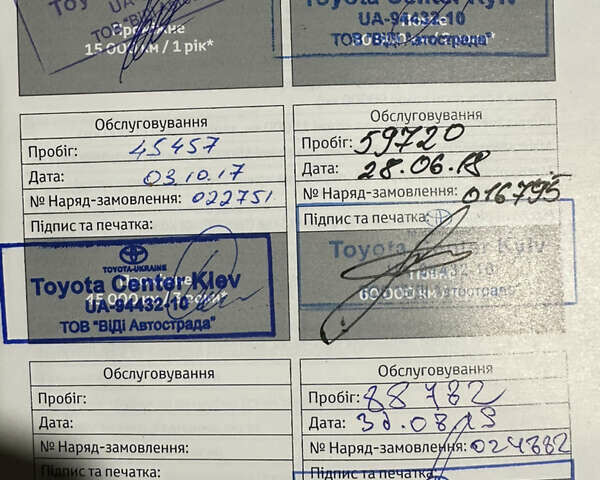 Toyota Center Kyiv
UA-94432-10
ТОВ "ВіДі Автострада"
15 000 км / 1 рік*
Обслуговування
Пробіг: 45457
Дата: 03.10.17
№ Наряд-замовлення: 022751
Підпис та печатка:
TOYOTA-UKRAINE
Toyota Center Kiev
UA-94432-10
ТОВ "ВіДі Автострада"
Обслуговування
Пробіг: 59720
Дата: 28.06.18
№ Наряд-замовлення: 016795
Підпис та печатка:
Toyota Center Kyiv
60 000 км
Обслуговування
Пробіг:
Дата:
№ Наряд-замовлення:
Підпис та печатка:
Обслуговування
Пробіг: 88782
Дата: 30.08.19
№ Наряд-замовлення: 024882
Підпис та печатка: